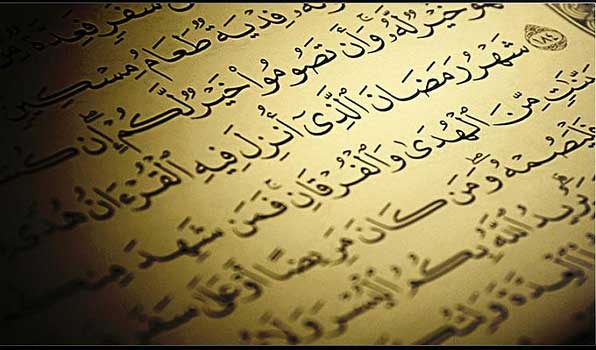 سَفَرٍ فَعِدَّةٌ
فِدْيَةٌ طَعَامُ مِسْكِينٍ
هُوَ خَيْرٌ لَّهُۥ ۚ وَأَن تَصُومُوا۟ خَيْرٌ لَّكُمْ ۖ إِن كُنتُ
١٨٤ شَهْرُ رَمَضَانَ ٱلَّذِىٓ أُنزِلَ فِيهِ ٱلْقُرْءَانُ هُدًى
بَيِّنَٰتٍ مِّنَ ٱلْهُدَىٰ وَٱلْفُرْقَانِ ۚ فَمَن شَهِدَ مِنكُمُ
فَلْيَصُمْهُ ۖ وَمَن كَانَ مَرِيضًا أَوْ عَلَىٰ سَفَرٍ
يُرِيدُ ٱللَّهُ بِكُمُ ٱلْيُسْرَ وَلَا
ٱلْعِدَّةَ